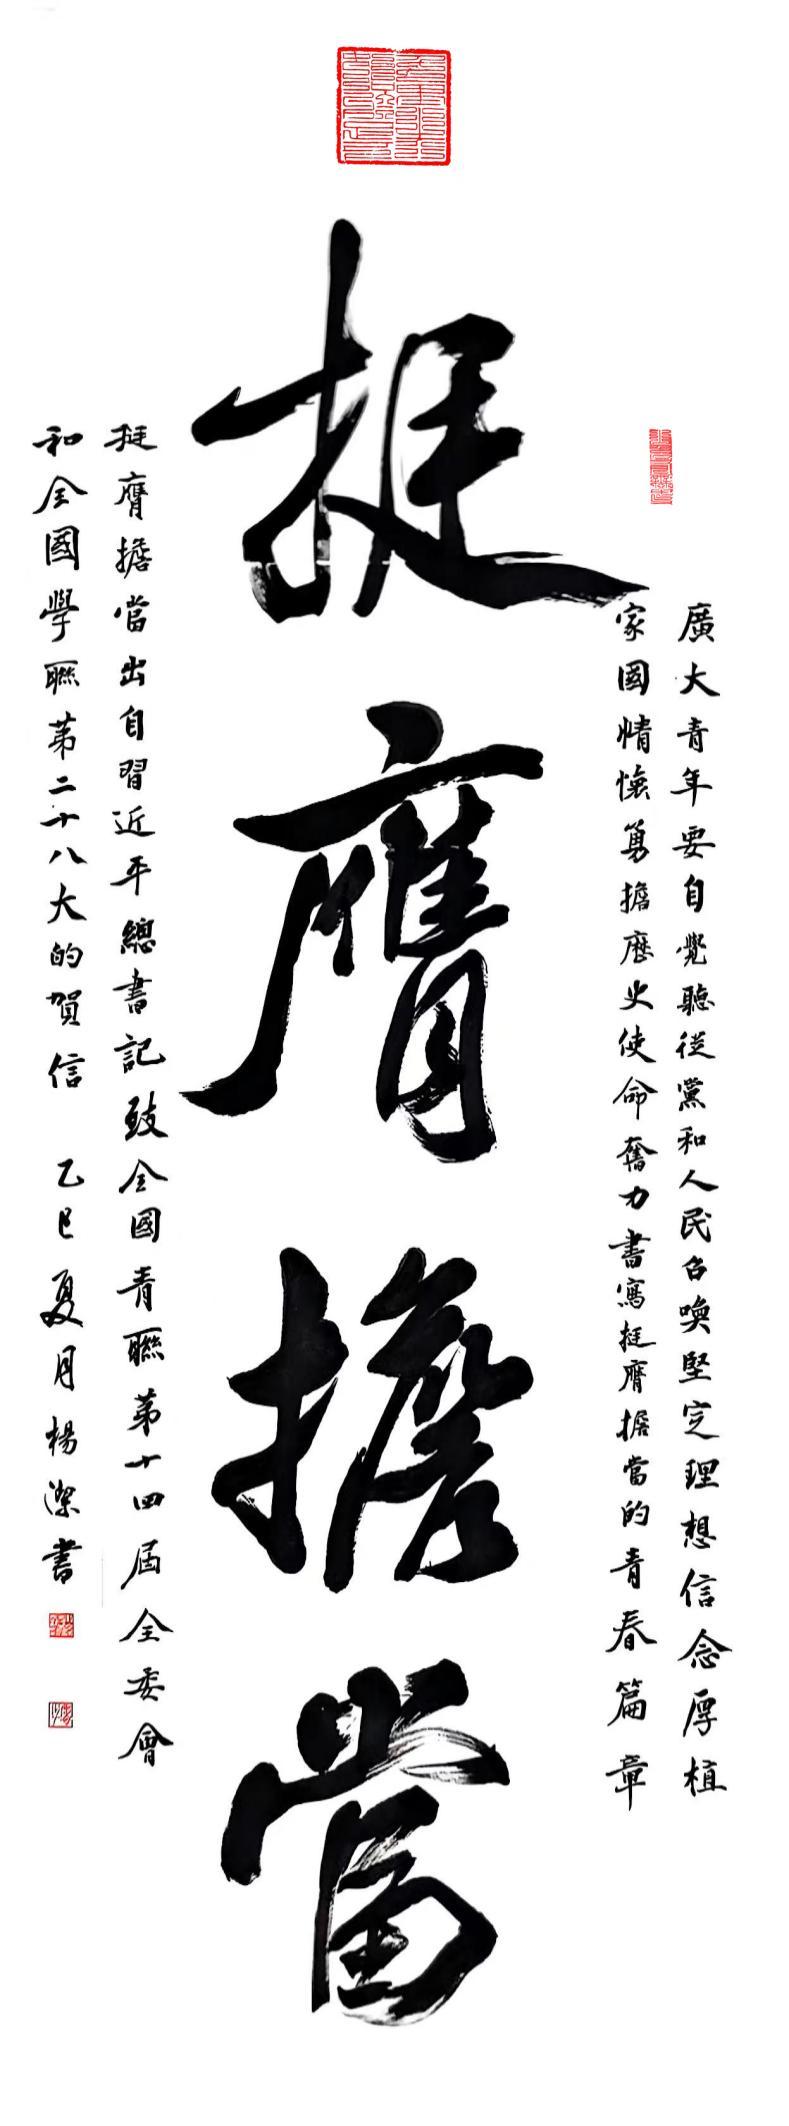 挺膺擔當
廣大青年要自覺聽從黨和人民召喚堅定理想信念厚植
家國情懷勇擔歷史使命奮力書寫挺膺擔當的青春篇章
挺膺擔當出自習近平總書記致全國青聯第十四屆全委會
和全國學聯第二十八大的賀信 乙巳夏月楊潔書